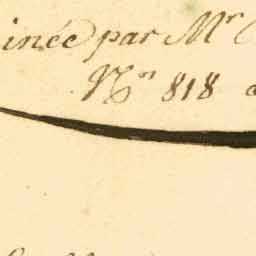 inée par Mr
No̱n 818